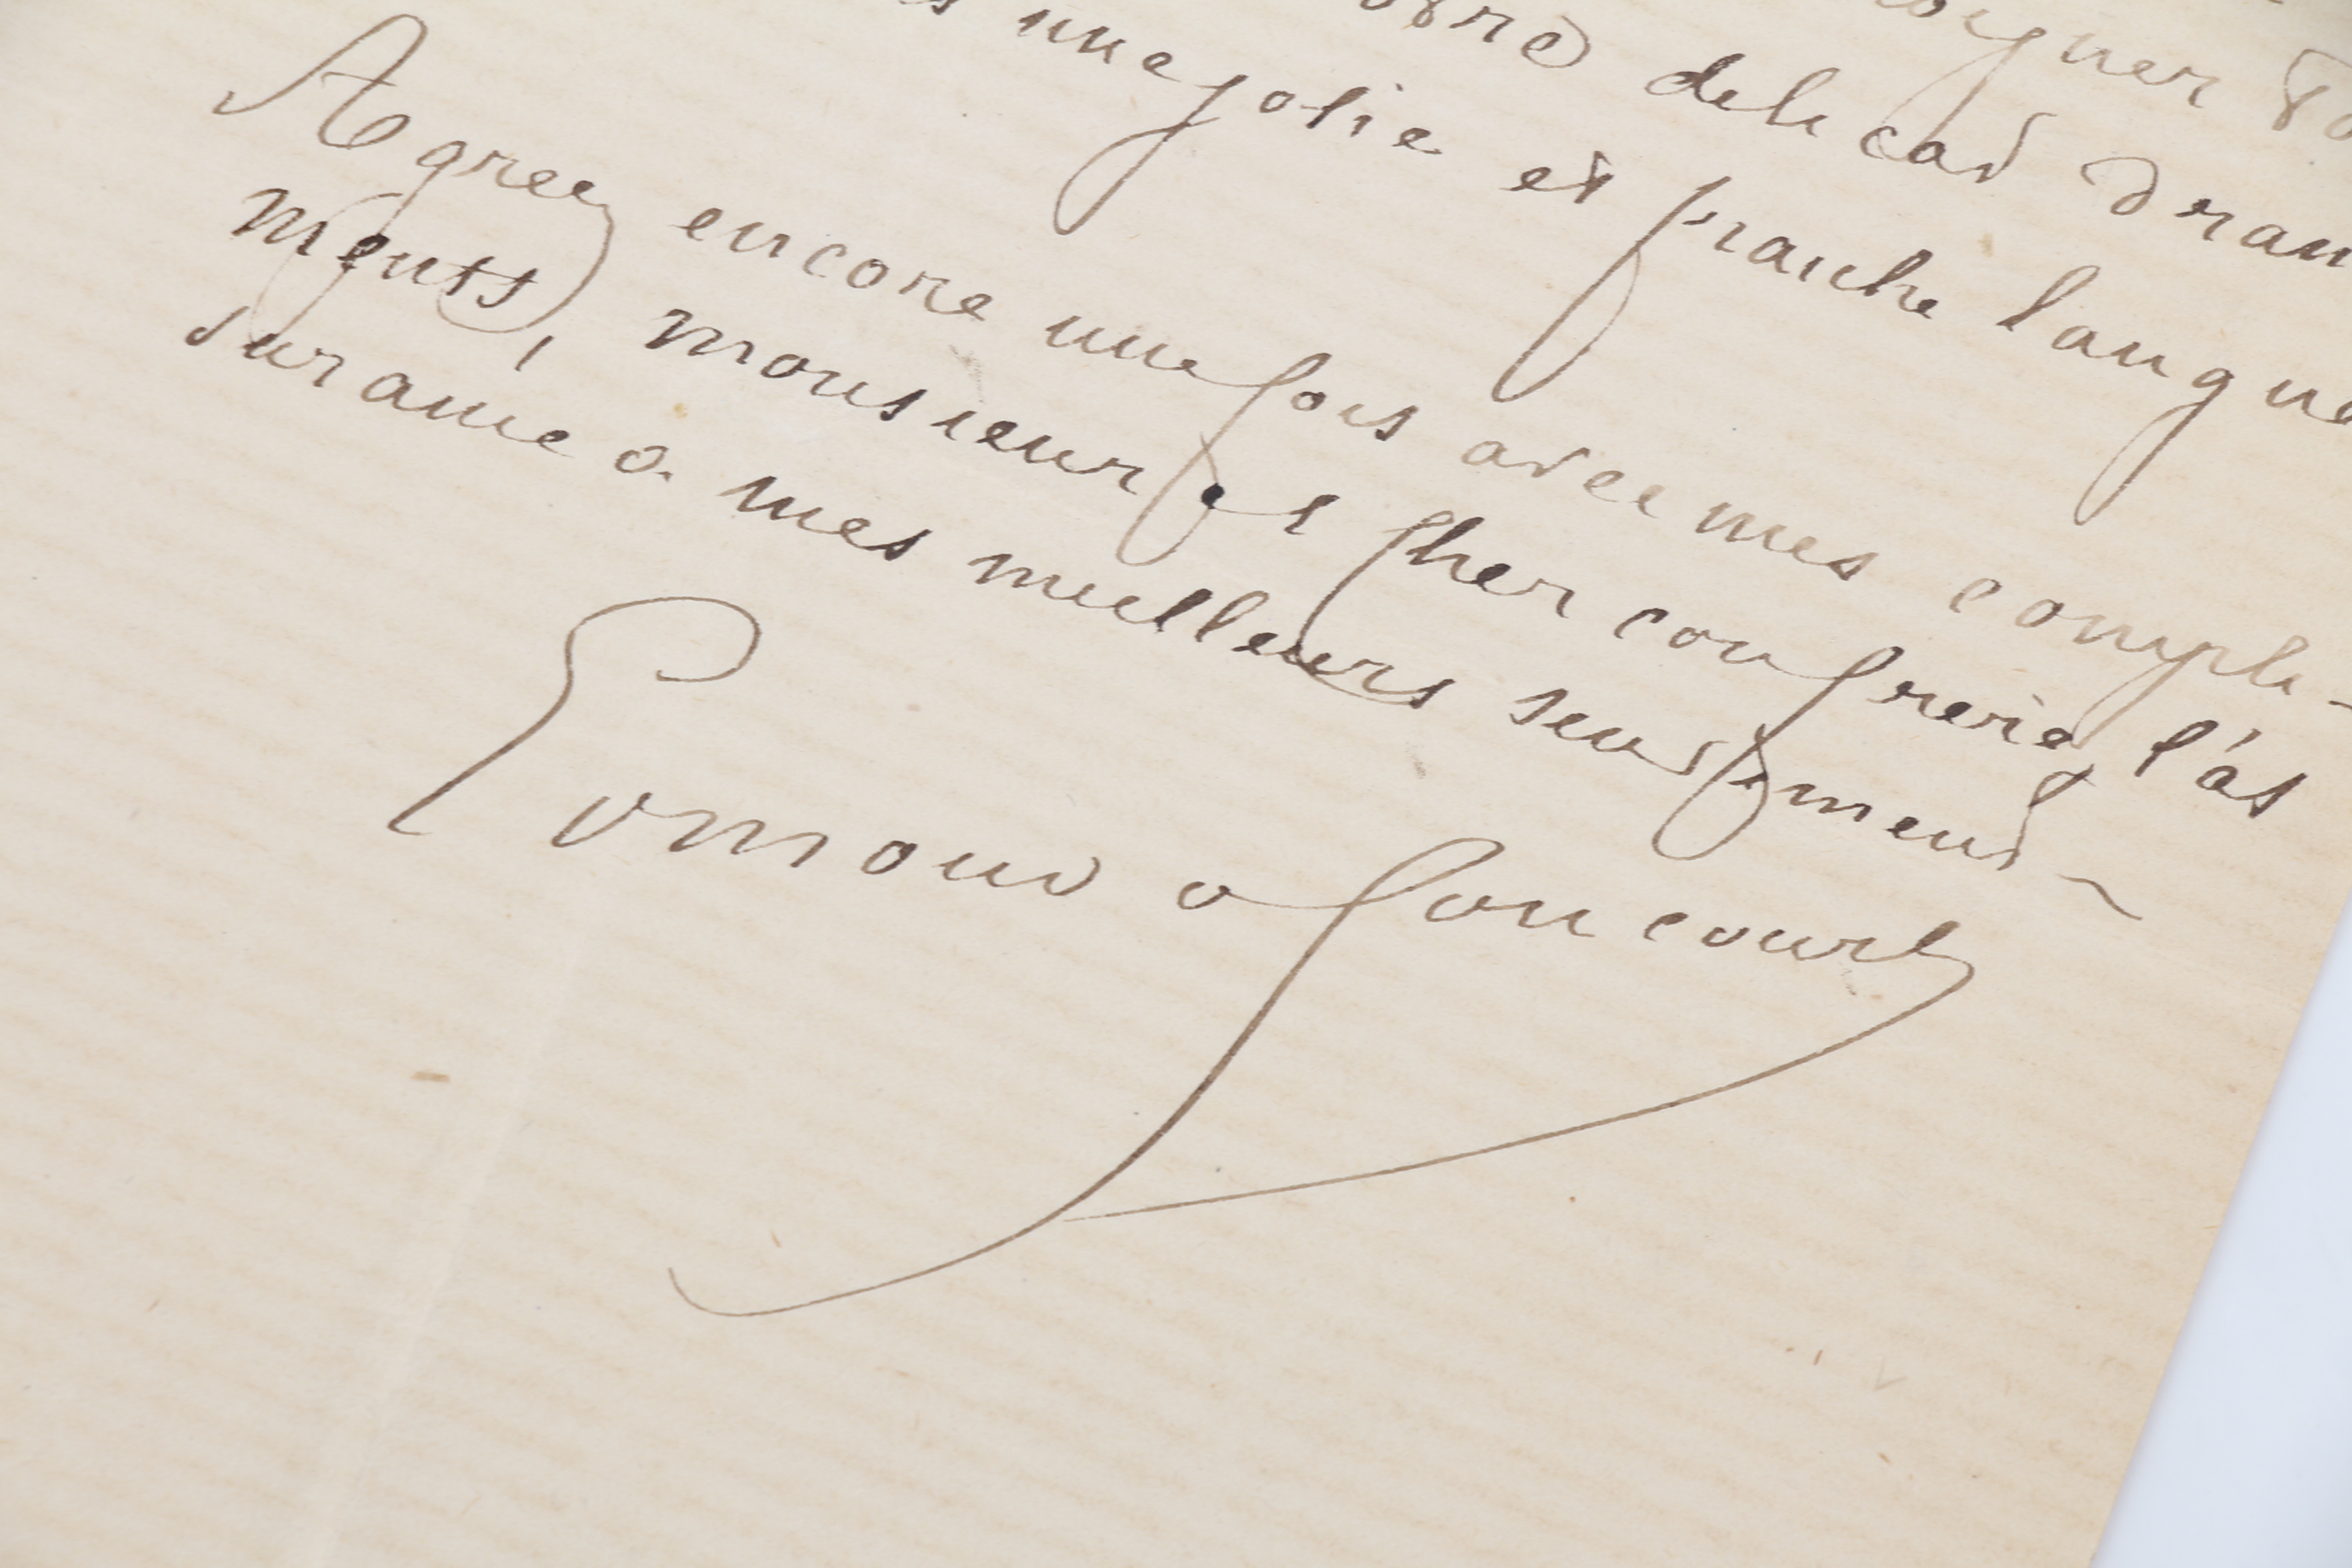 délicat dram
une jolie et fraiche langue
Agreez encore une fois avec mes compli-
ments, monsieur et cher confrère, l'as
surance de mes meilleurs sentiments
Edmond de Goncourt